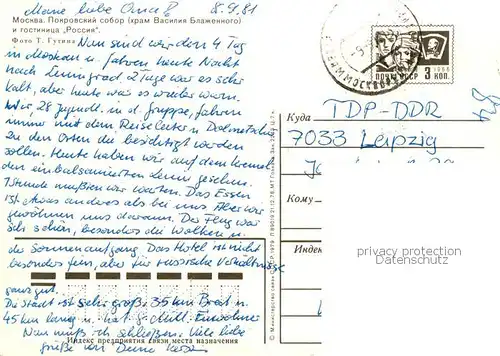 Meine liebe Oma! 8.9.81
Москва. Покровский собор (храм Василия Блаженного)
и гостиница „Россия“.
Фото Т. Гутина
Nun sind wir den 4 Tag
in Moskau u. fahren heute Nacht
nach Leningrad. 2 Tage war es sehr
kalt, aber heute war es wieder warm.
Wir 28 Jugendl. in d. Gruppe, fahren
immer mit dem Reiseleiter u. Dolmetscher
zu den Orten die besichtigt werden
sollen. Heute haben wir auf dem Kreml
den einbalsamierten Lenin gesehen.
1 Stunde mußten wir warten. Das Essen
ist etwas anders als bei uns. Aber wir
gewöhnen uns daran. Der Flug war
sehr schön, besonders die Wolken u.
der Sonnenaufgang. Das Hotel ist nicht
besonders fein, aber für russische Verhältnisse
ganz gut.
Die Stadt ist sehr groß. 35 km Breit u.
45 km lang u. hat 8 Mill. Einwohner
Nun muß ich schließen. Viele liebe
Grüße von Deine
Индекс предприятия связи места назначения
© Министерство связи СССР. 1979.
ПОЧТА СССР 3 КОП.
1966
Куда
TDP-DDR
7033 Leipzig
Кому
Индекс
privacy protection
Datenschutz